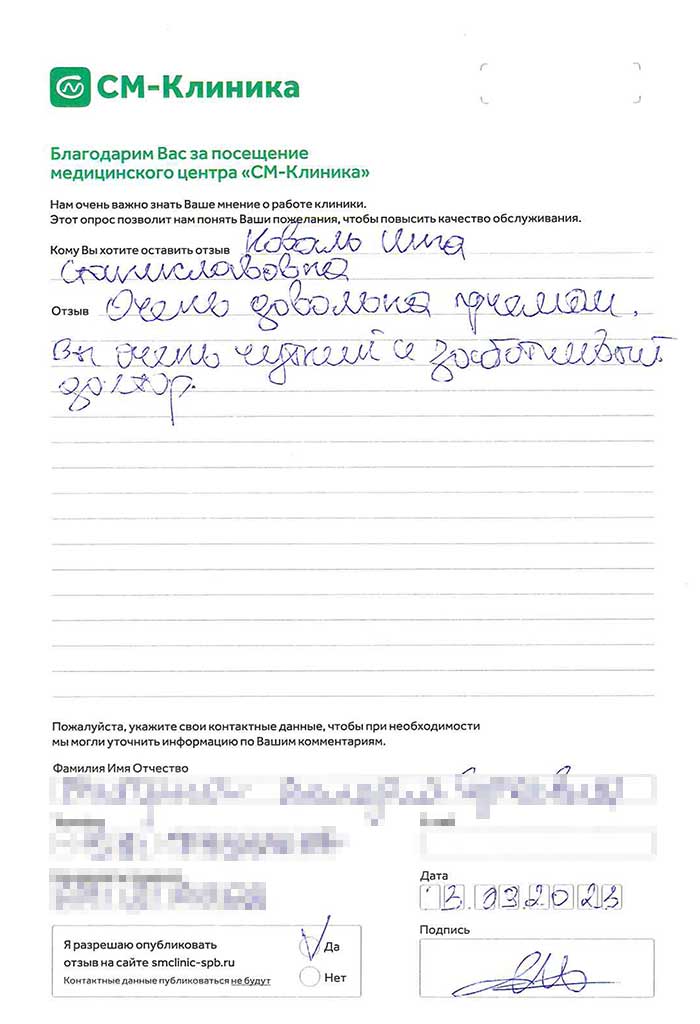 СМ-Клиника
Благодарим Вас за посещение
медицинского центра «СМ-Клиника»
Нам очень важно знать Ваше мнение о работе клиники.
Этот опрос позволит нам понять Ваши пожелания, чтобы повысить качество обслуживания.
Кому Вы хотите оставить отзыв Коваль Инга
Станиславовна
Отзыв Очень довольна приемом.
Вы очень чуткий и заботливый
доктор.
Пожалуйста, укажите свои контактные данные, чтобы при необходимости
мы могли уточнить информацию по Вашим комментариям.
Фамилия Имя Отчество
Дата
3.03.2023
Подпись
Я разрешаю опубликовать
отзыв на сайте smclinic-spb.ru
Контактные данные публиковаться не будут
Да
Нет